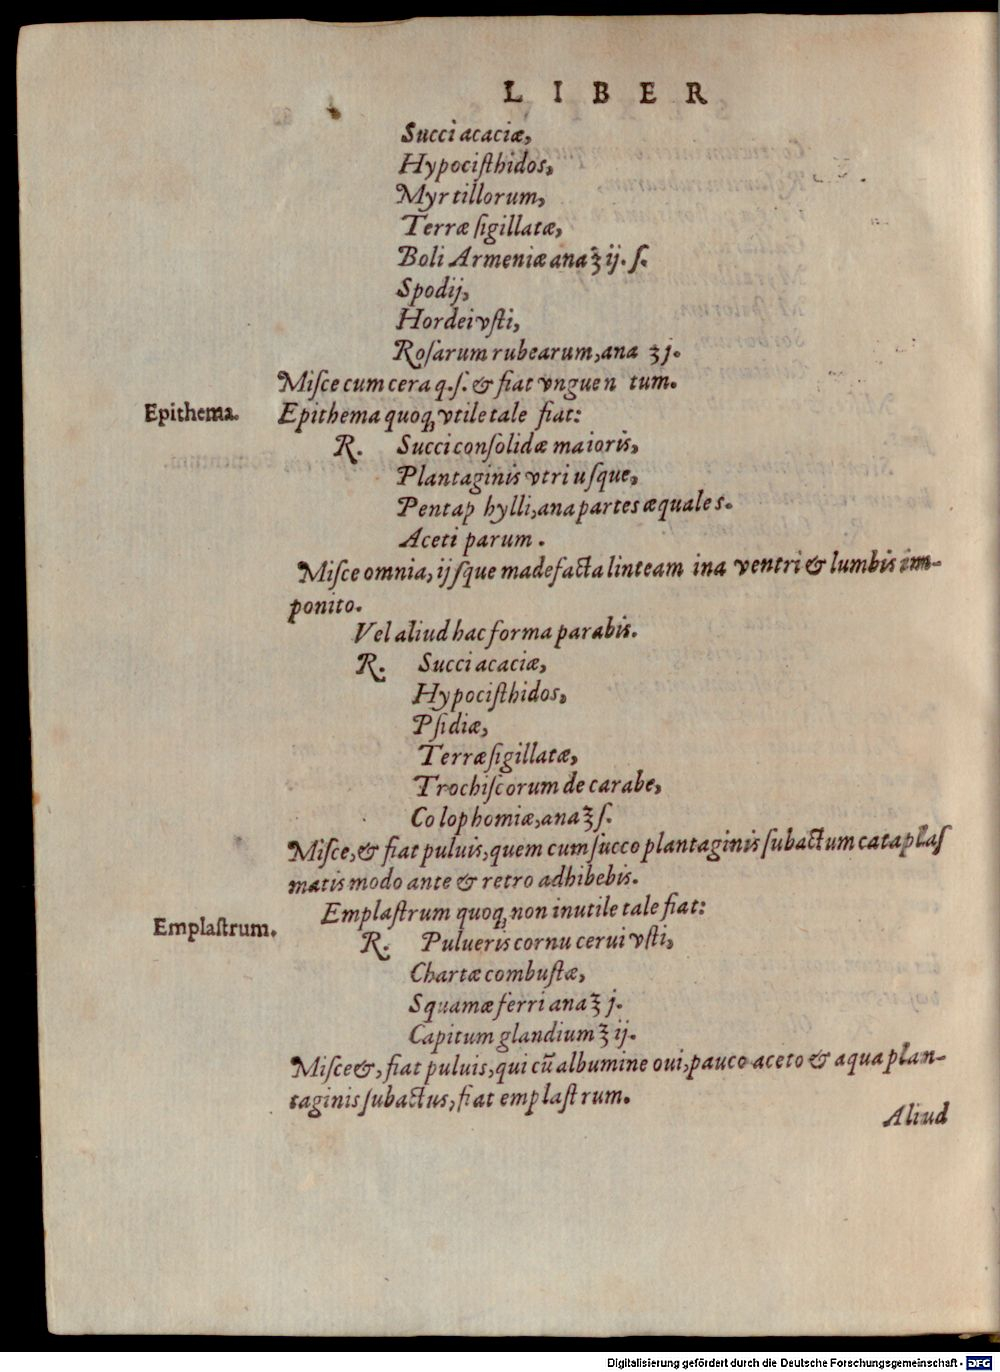 LIBER
Succi acaciæ,
Hypociſthidos,
Myrtillorum,
Terræ ſigillatæ,
Boli Armeniæ ana ʒ ij. ſ.
Spodij,
Hordei vſti,
Roſarum rubearum, ana ʒ j.
Miſce cum cera q.ſ. & fiat vnguen tum.
Epithema. Epithema quoq; vtile tale fiat:
R. Succi conſolidæ maioris,
Plantaginis vtriuſque,
Pentap hylli, ana partes æquales.
Aceti parum.
Miſce omnia, ijſque madefacta linteam ina ventri & lumbis im-
ponito.
Vel aliud hac forma parabis.
R. Succi acaciæ,
Hypociſthidos,
Pſidiæ,
Terræ ſigillatæ,
Trochiſcorum de carabe,
Colophomiæ, ana ʒ ſ.
Miſce, & fiat puluis, quem cum ſucco plantaginis ſubactum cataplaſ
matis modo ante & retro adhibebis.
Emplaſtrum quoq; non inutile tale fiat:
Emplaſtrum. R. Pulueris cornu cerui vſti,
Chartæ combuſtæ,
Squamæ ferri ana ʒ j.
Capitum glandium ʒ ij.
Miſce &, fiat puluis, qui cũ albumine oui, pauco aceto & aqua plan-
taginis ſubactus, fiat emplaſtrum.
Aliud
Digitalisierung gefördert durch die Deutsche Forschungsgemeinschaft - DFG